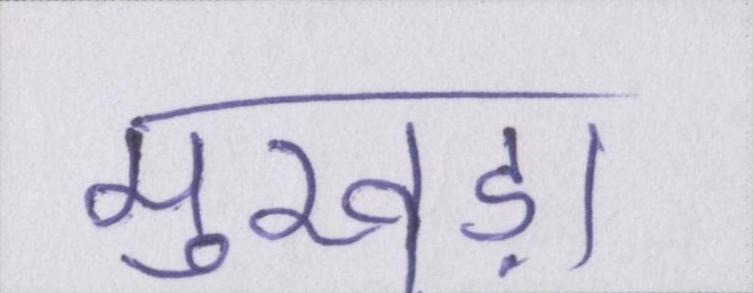 मुखड़ा